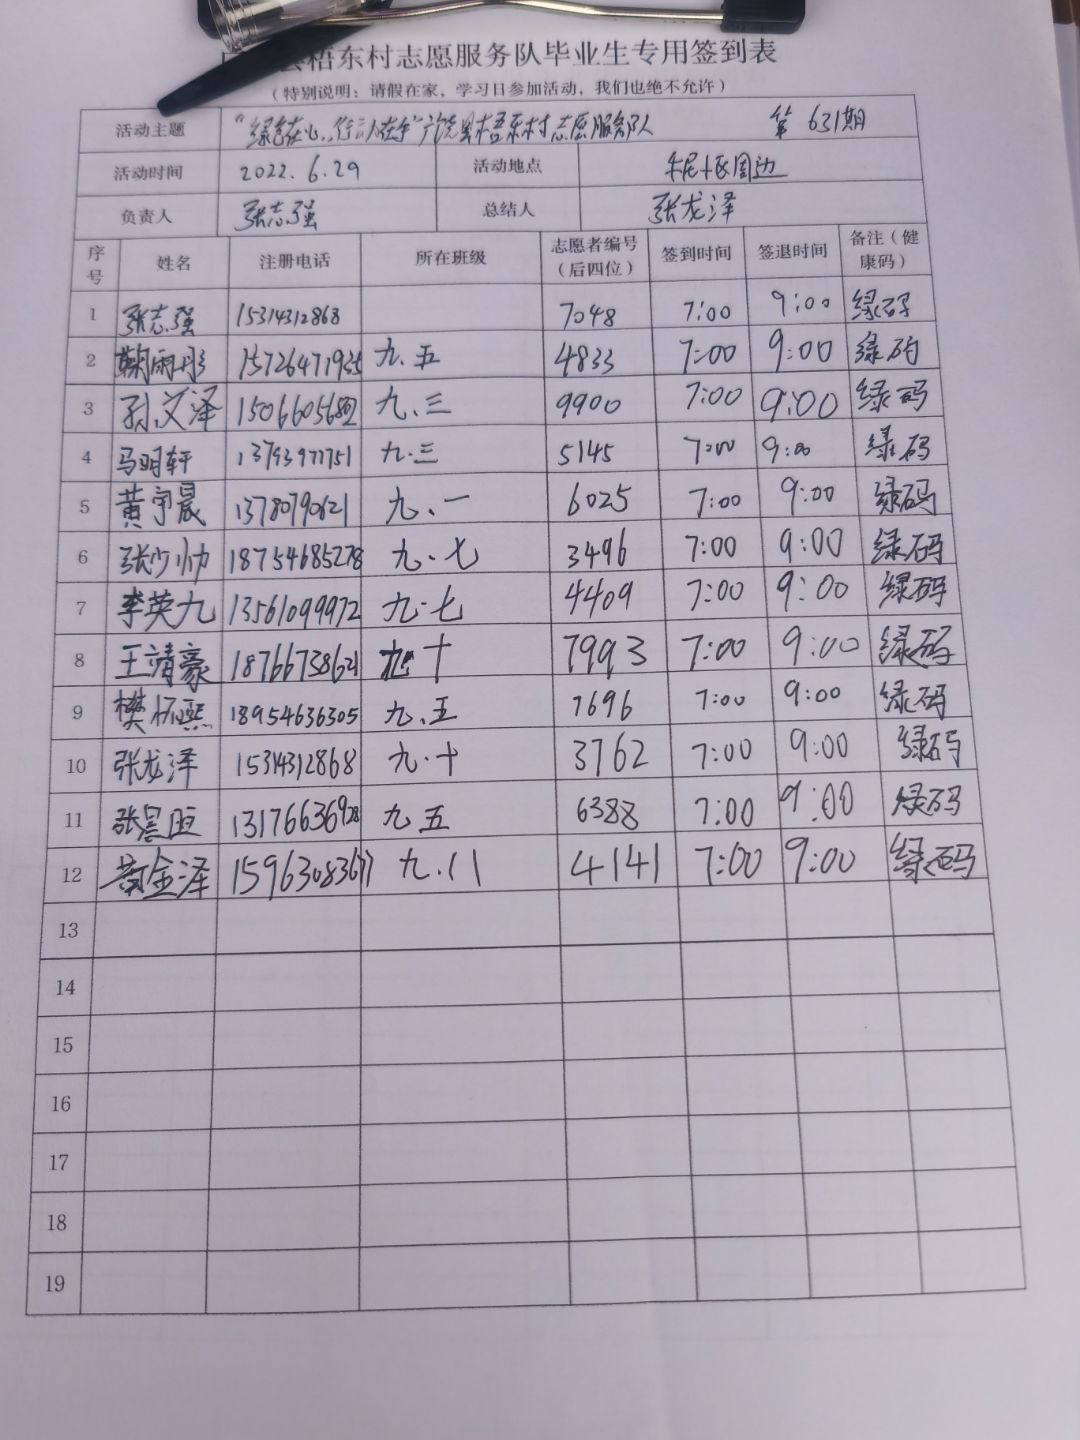 梧东村志愿服务队毕业生专用签到表
（特别说明：请假在家，学习日参加活动，我们也绝不允许）
活动主题 "绿色在心，行动在手"广饶县梧东村志愿服务队 第631期
活动时间 2022.6.29 活动地点 周边
负责人 张志强 总结人 张龙泽
序号 姓名 注册电话 所在班级 志愿者编号（后四位） 签到时间 签退时间 备注（健康码）
1 张志强 15314312868 7048 7:00 9:00 绿码
2 鞠雨彤 15726471935 九.五 4833 7:00 9:00 绿码
3 孙文泽 九.三 9900 7:00 9:00 绿码
4 马明轩 13793977751 九.三 5145 7:00 9:00 绿码
5 黄宇晨 13780790621 九.一 6025 7:00 9:00 绿码
6 张少帅 18754685278 九.七 3496 7:00 9:00 绿码
7 李英九 13561099972 九.七 4409 7:00 9:00 绿码
8 王靖豪 18766738621 九.十 7993 7:00 9:00 绿码
9 樊 熙 18954636305 九.五 7696 7:00 9:00 绿码
10 张龙泽 15314312868 九.十 3762 7:00 9:00 绿码
11 张 13176636928 九五 6388 7:00 9:00 绿码
12 黄金泽 九.八 4141 7:00 9:00 绿码
13
14
15
16
17
18
19